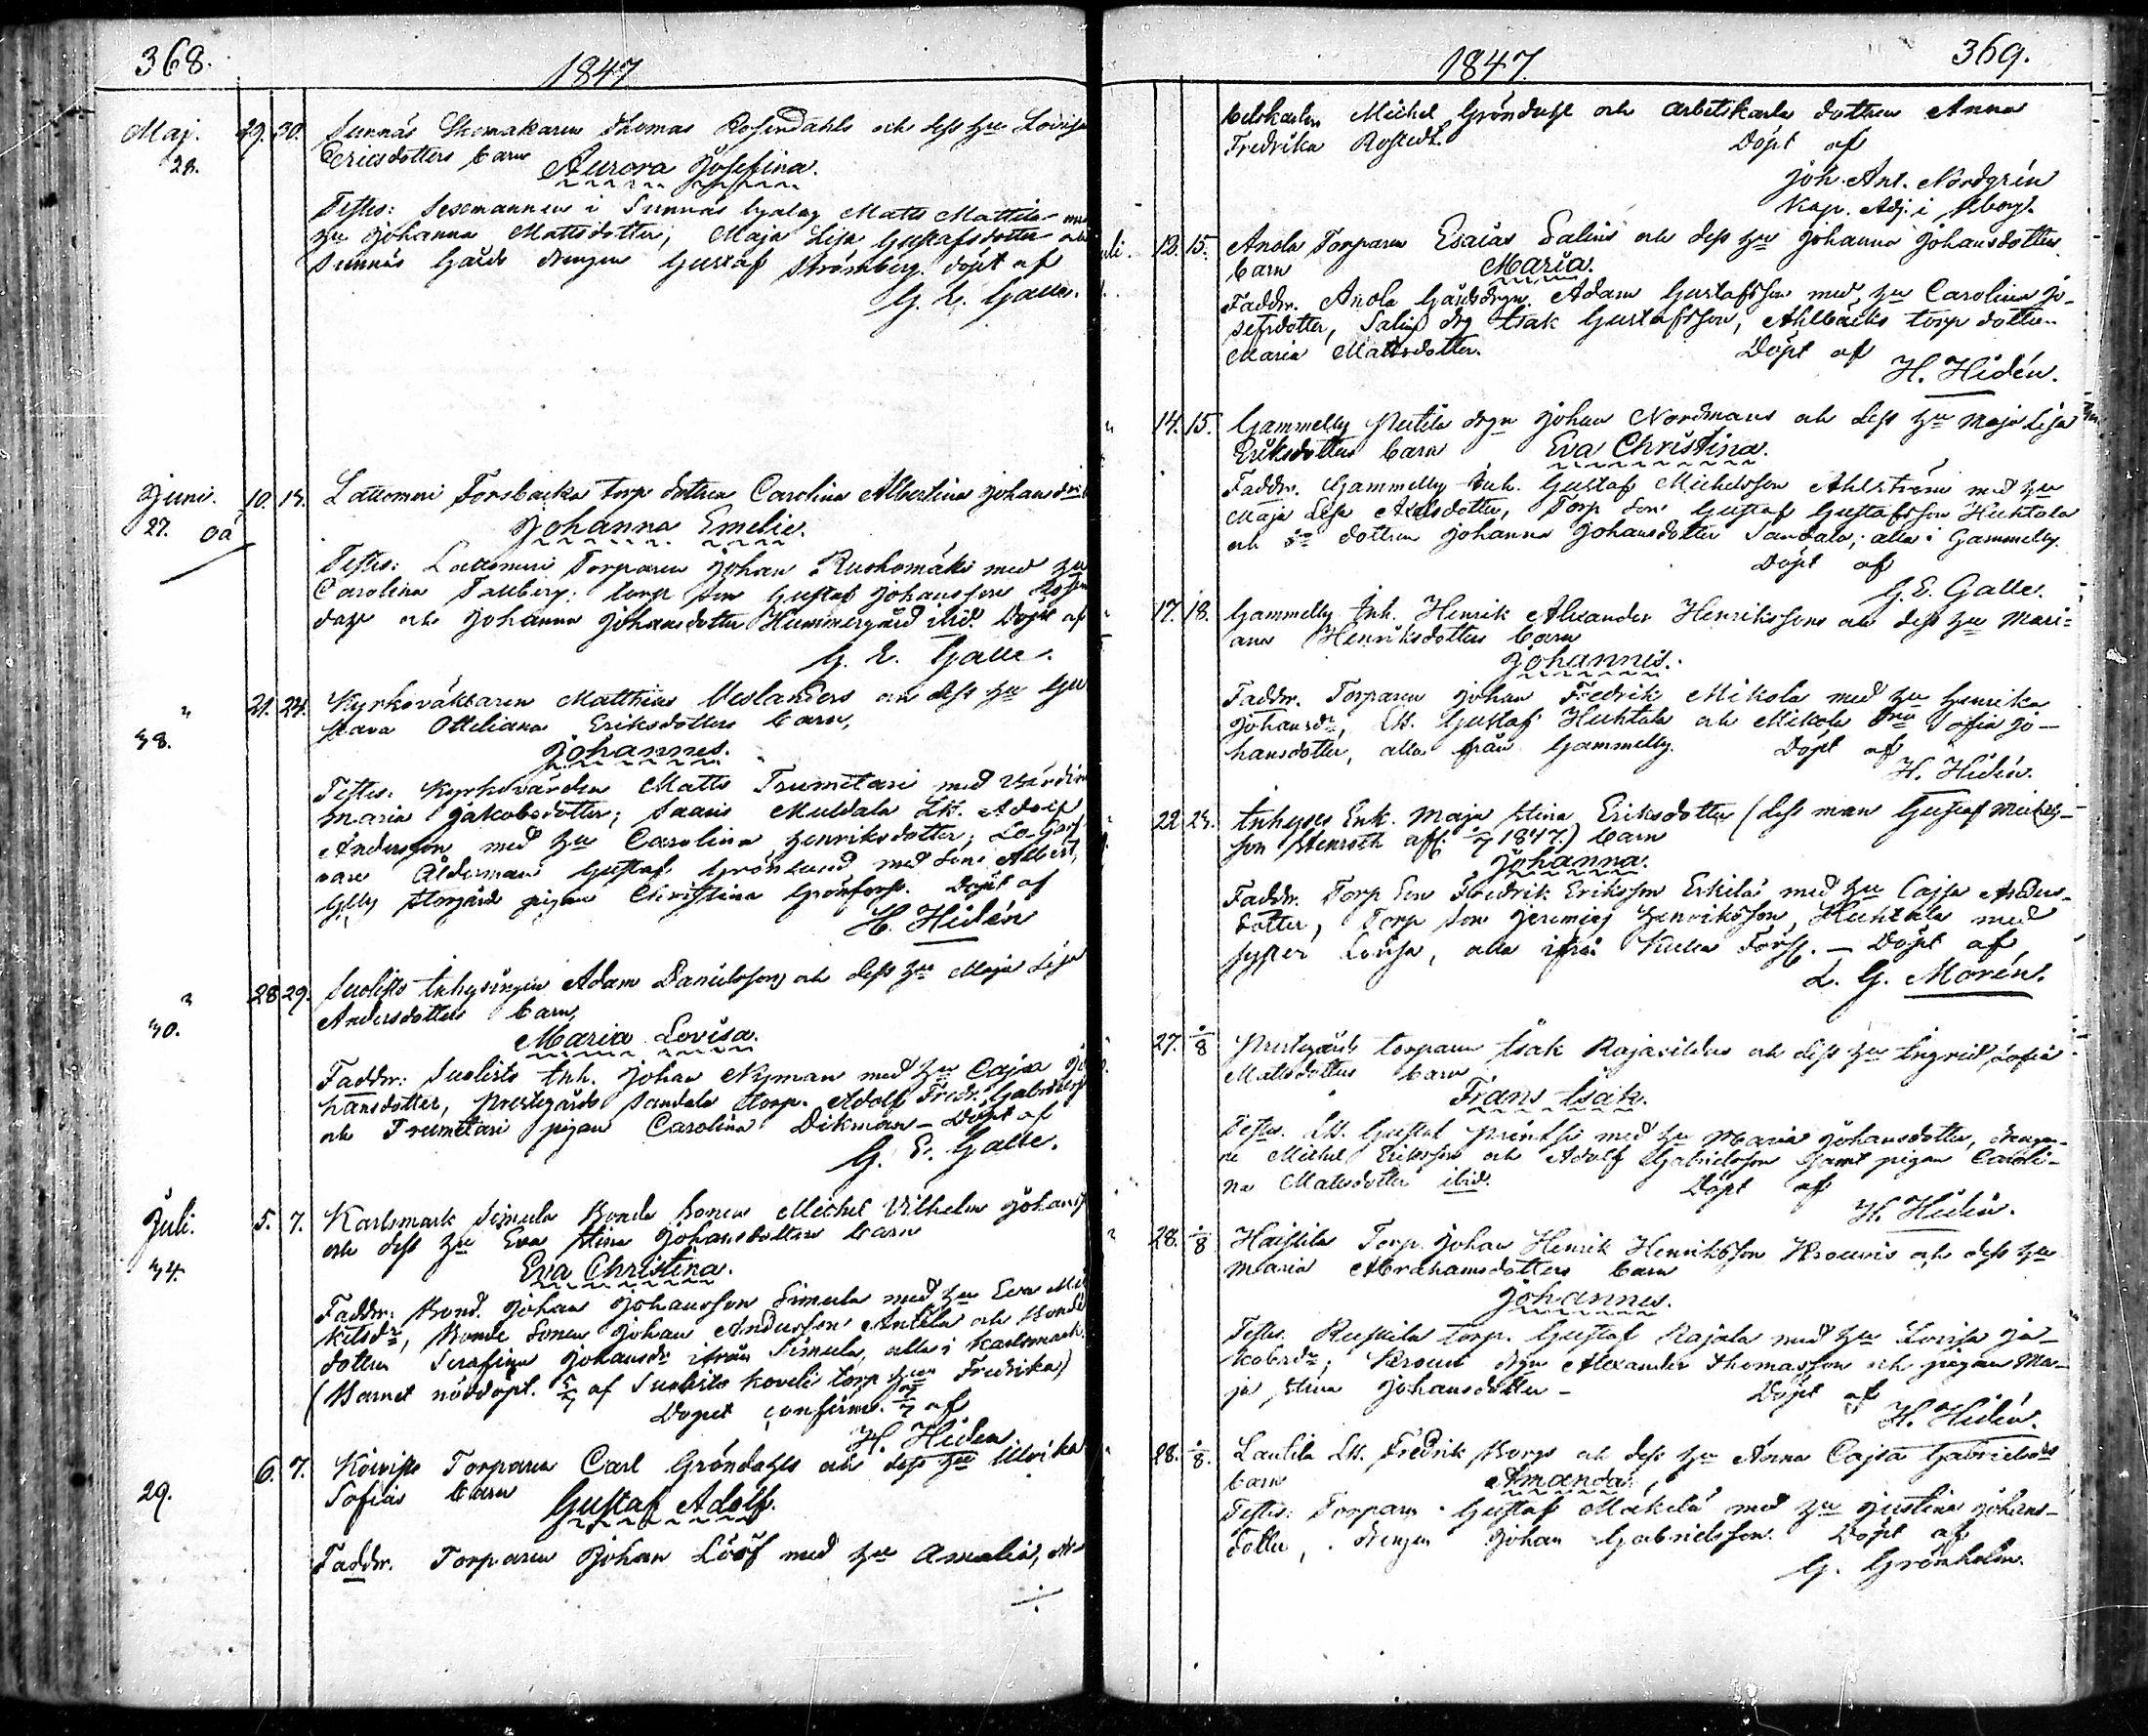 368.
1847
Maj. 29. 30. Sunnäs Skomakaren Thomas Rosendahls och dess hu Lovisa
28. Ericsdotters barn Aurora Josefina.
Testes: Sexmannen i Sunnäs Matts Mattila
hu Johanna Mattsdotter; Maja Lisa Gustafsdotter och
Sunnäs Gårds drengen Gustaf Strömberg. döpt af
G. E. Galle.
Juni. 10. 13. Lattomeri Forsbacka torp dottren Carolina Albertina Johansd
27. oä Johanna Emelie.
Testes: Lattomeri Torparen Johan Ruohomäki med hu
Carolina Tallberg: torp son Gustaf Johansson
och Johanna Johansdotter Hummergård ibid. Döpt af
G. E. Galle.
" 21. 24. Kyrkoväktaren Matthias Veslanders och dess hu Gu
38. stava Otteliana Eriksdotters barn,
Johannes.
Testes: Kyrkovärden Matts Trumetari med Värdin
Maria Jakobsdotter; Saaris Muldala Adolf
Andersson med hu Carolina Henriksdotter;
vare Ålderman Gustaf Grönlund med Son Albert,
Storgårds pigan Christina Grönfors. Döpt af
H. Hidén
" 28 29. Suolisto Inhysingen Adam Danielsson och dess hu Maja Lisa
30. Andersdotters barn,
Maria Lovisa.
Faddr: Suolisto Inh. Johan Nyman med hu Cajsa Jo
hansdotter, Prestegårds Sandala torp. Adolf Fredr. Gabrielss
och Trumetari pigan Carolina Dikman – Döpt af
G. E. Galle.
Juli. 5. 7. Karlsmark Simula Bonde Sonen Michel Vilhelm Johanss
34. och dess hu Eva Stina Johansdotters barn
Eva Christina.
Faddr: Bond. Johan Johansson Simula med hu Eva Mi
kelsdr, Bonde Sonen Johan Andersson Anttila och Bonde
dottren Serafina Johansdr ifrån Simula, alla i Karlsmark.
(Barnet nöddöpt. 5/7 af Suolisto Koveli torp hu Fredrika)
Dopet confirm. 7/7 af
H. Hidén
6. 7. Koivisto Torparen Carl Gröndahls och dess hu Ulrika
29. Sofias barn Gustaf Adolf.
Faddr. Torparen Johan Lööf med hu Amalia, Ar
÷
1847.
369.
betskarlen Michel Gröndahl och arbetskarls dottren Anna
Fredrika Rostedt. Döpt af
Joh. Ant. Nordgrén
Kap. Adj. i Åborg.
12. 15. Anola Torparen Esaias Salins och dess hu Johanna Johansdotters
barn Maria.
Faddr. Anola Gårdsdrgn. Adam Gustafsson med hu Carolina Jo-
sefsdotter, Salins drg Isak Gustafsson, Ahlbacks torp dottren
Maria Mattsdotter. Döpt af
H. Hidén.
" 14. 15. Gammelby Pietilä drgn Johan Nordmans och dess hu Maja Lisa
Eriksdotters barn Eva Christina.
Faddr. Gammelby Inh. Gustaf Michelsson Ahlström med hu
Maja Lisa Axelsdotter, Torp Son Gustaf Gustafsson Huhtala
och dottren Johanna Johansdotter Sandala; alla i Gammelby.
Döpt af
G. E. Galle.
" 17. 18. Gammelby Inh. Henrik Alexander Henrikssons och dess hu Mari=
ana Henriksdotters barn
Johannes.
Faddr. Torparen Johan Fredrik Mikola med hu Henrika
Johansdr, Gustaf Huhtala och Mikola Sofia Jo-
hansdotter, alla från Gammelby. Döpt af
H. Hidén.
22 23. Inhyses Enk. Maja Stina Eriksdotter (dess man Gustaf Michels-
son Stenroth afl. 1847.) barn
Johanna.
Faddr. Torp Son Fredrik Eriksson Erkilä med hu Cajsa Anders-
dotter, Torp Son Jeremias Henriksson, Huhtala med
syster Lovisa, alla ifrån Kulla Förs. – Döpt af
L. G. Morén.
27. 1/8 Prestegårds torparen Isak Rajavildes och dess hu Ingrid Sofia
Mattsdotters barn
Frans Isak.
Testes. Gustaf Printti med hu Maria Johansdotter, drengar-
ne Michel Eriksson och Adolf Gabrielsson samt pigan Caroli-
na Mattsdotter ibid. Döpt af
H. Hidén.
" 28. 1/8 Haistila Torp. Johan Henrik Henriksson Krouvis och dess hu
Maria Abrahamsdotters barn
Johannes.
Testes. Ruskila torp. Gustaf Rajala med hu Lovisa Ja-
kobsdr; Krouvi drgn Alexander Thomasson och pigan Ma-
ja Stina Johansdotter – Döpt af
H. Hidén.
28. 1/8. Lautila Fredrik Borgs och dess hu Anna Cajsa Gabrielsdr
barn Amanda,
Testes: Torparen Gustaf Mäkelä med hu Justina Johans-
dotter, drengen Johan Gabrielsson. Döpt af
G. Grönholm.